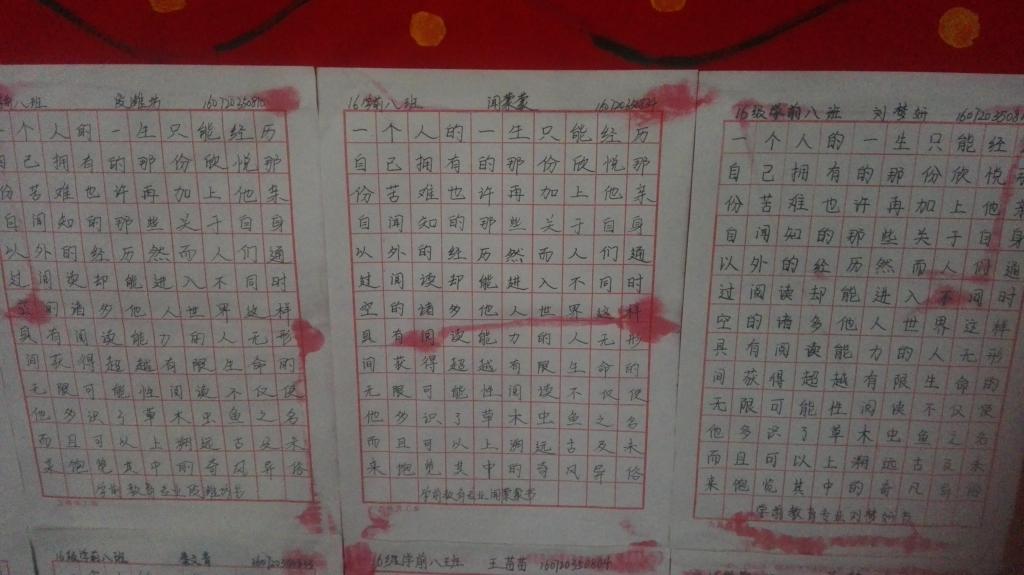 学前八班
一个人的一生只能经历
自己拥有的那份欣悦那
份苦难也许再加上他亲
自闻知的那些关于自身
以外的经历然而人们通
过阅读却能进入不同时
空的诸多他人世界这样
具有阅读能力的人无形
间获得超越有限生命的
无限可能性阅读不仅使
他多识了草木虫鱼之名
而且可以上溯远古及未
来饱览其中的奇风异俗
学前教育专业
16学前八班 闻蒙蒙
一个人的一生只能经历
自己拥有的那份欣悦那
份苦难也许再加上他亲
自闻知的那些关于自身
以外的经历然而人们通
过阅读却能进入不同时
空的诸多他人世界这样
具有阅读能力的人无形
间获得超越有限生命的
无限可能性阅读不仅使
他多识了草木虫鱼之名
而且可以上溯远古及未
来饱览其中的奇风异俗
学前教育专业闻蒙蒙书
16级学前八班 刘梦妍
一个人的一生只能经
自己拥有的那份欣悦那
份苦难也许再加上他亲
自闻知的那些关于自身
以外的经历然而人们通
过阅读却能进入不同时
空的诸多他人世界这样
具有阅读能力的人无形
间获得超越有限生命的
无限可能性阅读不仅使
他多识了草木虫鱼之名
而且可以上溯远古及未
来饱览其中的奇风异俗
学前教育专业刘梦妍书
16级学前八班
16级学前八班 王茵茵 160720350804